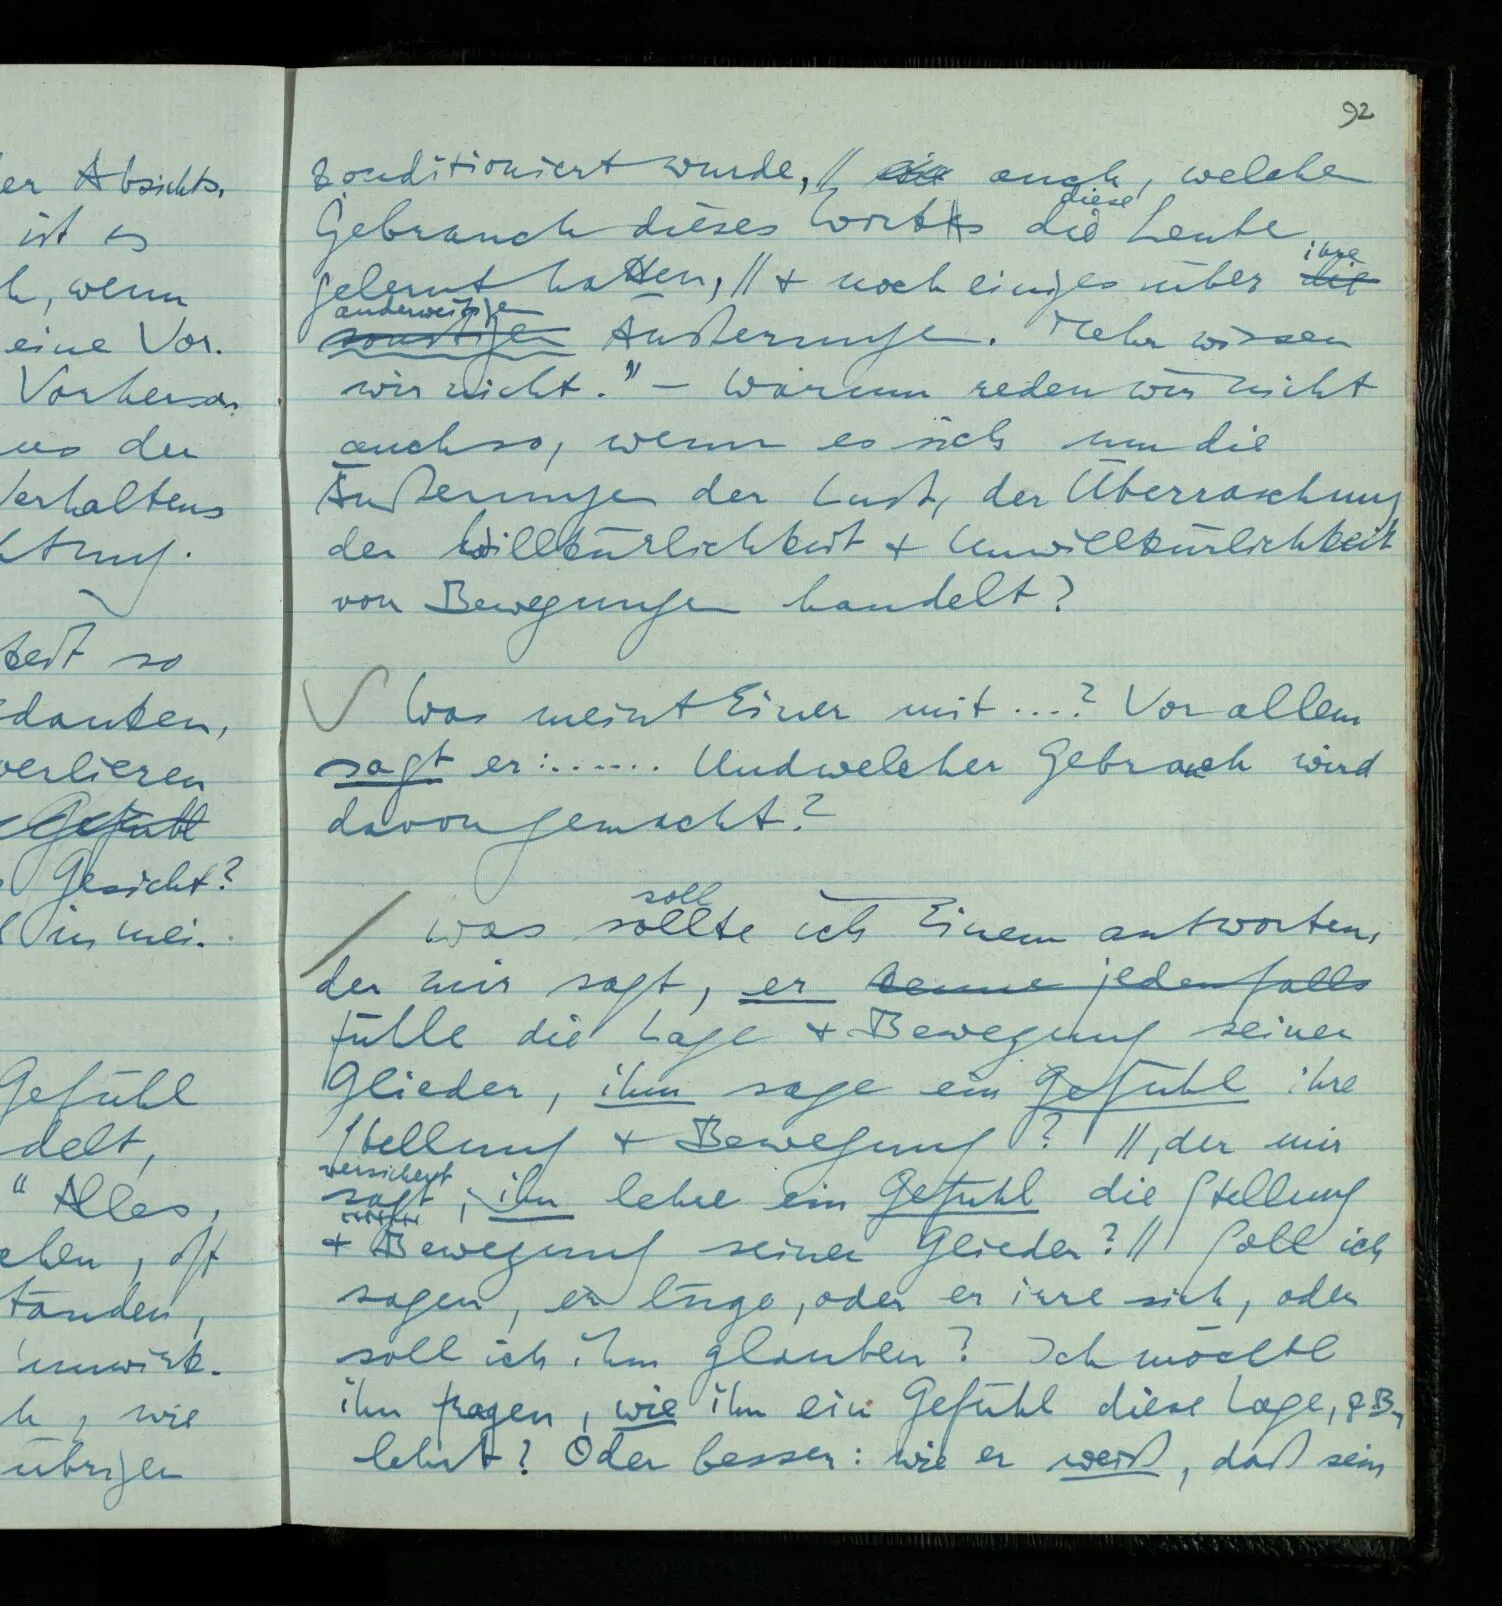 er Absichts,
ist es
h, wenn
eine Vor.
Vorhersa.
us der
Verhaltens
htung.
keit so
danken,
verlieren
Gefühl
Gesicht?
in mei.
Gefühl
delt,
" Alles,
chen, oft
tanden,
unwirk.
h, wie
übrigen
92
konditioniert wurde, // auch, welchen
diese
Gebrauch dieses Wortes die Leute
ihre
gelernt hatten, // + noch einiges über die
anderweitigen
sonstigen Äußerungen. Mehr wissen
wir nicht." – Warum reden wir nicht
auch so, wenn es sich um die
Äußerungen der Lust, der Überraschung
der Willkürlichkeit + Unwillkürlichkeit
von Bewegungen handelt?
Was meint Einer mit ....? Vor allem
sagt er: ...... Und welcher Gebrauch wird
davon gemacht?
soll
Was sollte ich Einem antworten,
der mir sagt, er kenne jedenfalls
fühle die Lage + Bewegung seiner
Glieder, ihm sage ein Gefühl ihre
Stellung + Bewegung? //, der mir
versichert
sagt, ihn lehre ein Gefühl die Stellung
+ Bewegung seiner Glieder? // Soll ich
sagen, er lüge, oder er irre sich, oder
soll ich ihm glauben? Ich möchte
ihn fragen, wie ihn ein Gefühl diese Lage, z.B.,
lehrt? Oder besser: wie er weiß, daß sein